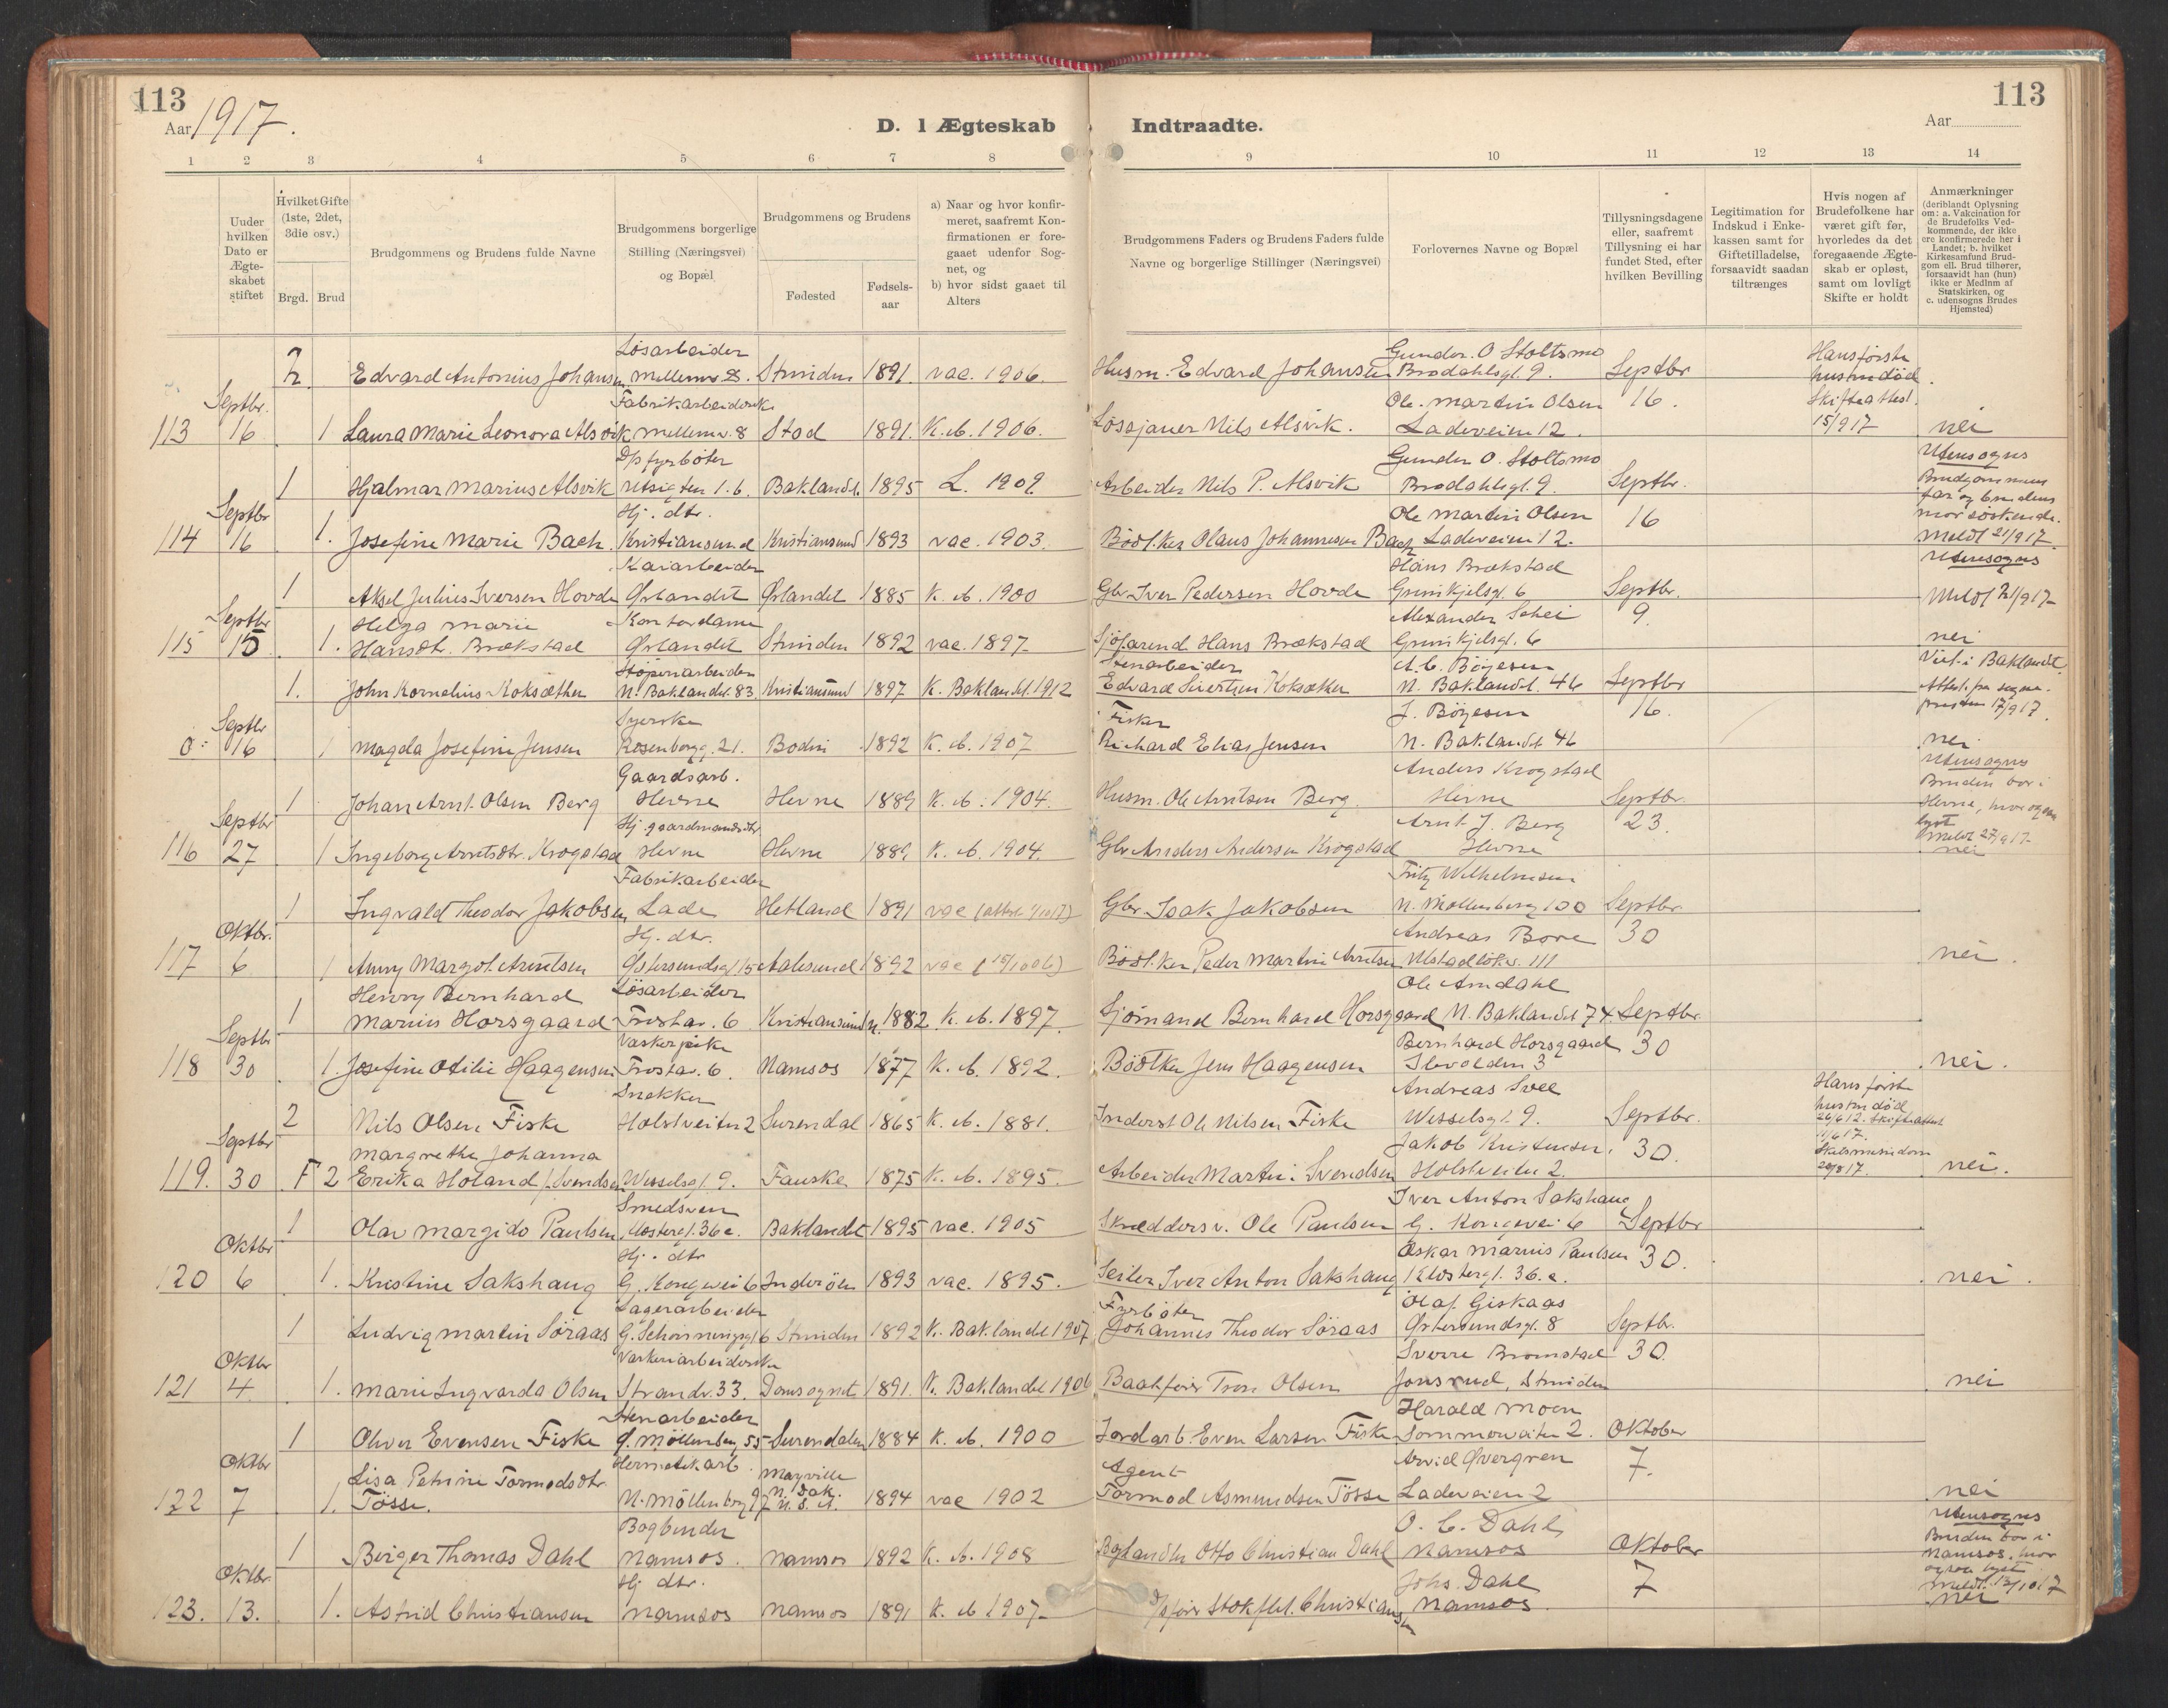 113
Aar 1917.
D. I Ægteskab
Indtraadte.
113
Aar
1 2 3 4 5 6 7 8 9 10 11 12 13 14
Uuder hvilken Dato er Ægteskabet stiftet
Hvilket Gifte (1ste, 2det, 3die osv.)
Brgd. Brud
Brudgommens og Brudens fulde Navne
Brudgommens borgerlige Stilling (Næringsvei) og Bopæl
Brudgommens og Brudens
Fødested
Fødselsaar
a) Naar og hvor konfirmeret, saafremt Konfirmationen er foregaaet udenfor Sognet, og
b) hvor sidst gaaet til Alters
Brudgommens Faders og Brudens Faders fulde Navne og borgerlige Stillinger (Næringsvei)
Forlovernes Navne og Bopæl
Tillysningsdagene eller, saafremt Tillysning ei har fundet Sted, efter hvilken Bevilling
Legitimation for Indskud i Enkekassen samt for Giftetilladelse, forsaavidt saadan tiltrænges
Hvis nogen af Brudefolkene har været gift før, hvorledes da det foregaaende Ægteskab er opløst, samt om lovligt Skifte er holdt
Anmærkninger (deriblandt Oplysning om: a. Vakcination for de Brudefolks Vedkommende, der ikke ere konfirmerede her i Landet; b. hvilket Kirkesamfund Brudgom ell. Brud tilhører, forsaavidt han (hun) ikke er Medlnm af Statskirken, og c. udensogns Brudes Hjemsted)
2. Edvard Antonius Johansen Løsarbeider Mellemv. 8. Strinden 1891. vac. 1906. Husm. Edvard Johansen Gunder. O Stoltsmo Brodahlsgt. 9. Septbr 16. Hans første hustru død. Skifteattest. 15/9 17
113 Septbr. 16 1 Laura Marie Leonora Alsvik Fabrikarbeiderske Mellemv. 8 Stod 1891. K. A. 1906. Løssjauer Nils Alsvik. Ole. Martin Olsen Ladeveien 12. nei
1 Hjalmar Marius Alsvik D/s fyrbøter Utsigten 1. b. Baklandet 1895 L. 1909 Arbeider Nils P. Alsvik Gunder O. Stoltsmo Brodahlsgt. 9. Septbr. 16 Utensogns Brudgommens far og brudens mor søskende. Meldt 21/9 17
114 Septbr 16 1. Josefine Marie Bach. Hj. dtr. Kristiansund Kristiansund 1893 vac. 1903. Bødtker Olaus Johannesen Bach Ole Martin Olsen Ladeveien 12.
1 Aksel Julius Iversen Hovde Kaiarbeider Ørlandet Ørlandet 1885 K. A. 1900 Gbr Iver Pedersen Hovde Hans Brækstad Grinikjelsgt. 6 Septbr. 9. Utensogns Meldt 21/9 17
115 Septbr 15 1. Helga Marie Hansdtr. Brækstad Kontordame Ørlandet Strinden 1892 vac. 1897 Sjøfarend. Hans Brækstad Alexander Schei Grinikjelsgt. 6 nei
1. John Kornelius Koksæther Støperiarbeider N. Baklandet. 83 Kristiansund 1897 K. Baklandet 1912 Stenarbeider Edvard Sivertsen Koksæther A. C. Bøyesen N. Baklandet. 46 Septbr 16. Viet i Baklandet. Attest fra sognepresten 17/9 17.
0: Septbr 16 1 Magda Josefine Jensen Syerske Rosenborgg. 21. Bodin 1892 K. A. 1907 Fisker Richard Elias Jensen J. Bøyesen N. Baklandet 46 nei
1 Johan Arnt. Olsen Berg Gaardsarb. Hevne Hevne 1889 K. A. 1904. Husm. Ole Arntsen Berg. Anders Krogstad Hevne Septbr. 23. Utensogns Bruden bor i Hevne, hvor ogsaa lyst Meldt 27/9 17
116 Septbr 27 1 Ingeborg Arntsdtr. Krogstad Hj. gaardmandsdtr. Hevne Hevne 1889. K. A. 1904. Gbr Anders Andersen Krogstad Arnt. J. Berg Hevne nei
1 Ingvald Theodor Jakobsen Fabrikarbeider Lade Hetland 1891 vac Gbr. Isak Jakobsen Fritz Wilhelmsen N. Møllenberg 100 Septbr. 30
117 Oktbr. 6 1 Anny Margot. Arntsen Hj. dtr. Østersundsgt 15 Aalesund 1892 vac Bødtker Peder Martin Arntsen Andreas Bore Ulstadløkv. 111 nei.
1 Henry Bernhard Marius Horsgaard Løsarbeider Frostav. 6 Kristiansund n. 1882. K. A. 1897. Sjømand Bernhard Horsgaard Ole Arndahl N. Baklandet 74 Septbr. 30
118 Septbr 30 1. Josefine Otilie Haagensen Vaskerpike Frostav. 6. Namsos 1877 K. A. 1892. Bødtker Jens Haagensen Bernhard Horsgaard Ilevolden 3 nei.
2 Nils Olsen Fiske Snekker Holstveiten 2 Surendal 1865 K. A. 1881. Inderst Ole Nilsen Fiske Andreas Svee Wesselsgt. 9. Septbr. 30. Hans første hustru død 26/6 12. Skifteattest 11/6 17. Skilsmissedom 20/8 17.
119. Septbr 30 F 2 Margrethe Johanna Erika Holand f. Svendsen Wesselsgt. 9. Fauske 1875 K. A. 1895. Arbeider Martin Svendsen Jakob Kristensen. Holstveiten 2. nei.
1 Olav Margido Paulsen Smedsven Klostergt. 36a. Baklandet 1895 vac. 1905 Skræddersv. Ole Paulsen Iver Anton Sakshaug G. Kongevei 6 Septbr 30.
120 Oktbr 6 1. Kristine Sakshaug Hj. dtr G. Kongevei 6 Inderøen 1893 vac. 1895. Seiler Iver Anton Sakshaug Oskar Marius Paulsen Klostergt. 36. a. nei.
1 Ludvig Martin Søraas Lagerarbeider G. Schøningsgt 6 Strinden 1892 K. Baklandet 1907 Fyrbøter Johannes Theodor Søraas Olaf Giskaas Østersundsgt. 8 Septbr. 30.
121 Oktbr 4. 1. Marie Ingvarda Olsen Vaskeriarbeiderske Strandv. 33. Domsognet 1891. K. Baklandet 1906 Baatfører Tron Olsen Sverre Bromstad Jonsrud, Strinden nei
1 Oliver Evensen Fiske Stenarbeider Ø. Møllenberg 55 Surendalen 1884 K. A. 1900 Jordarb. Even Larsen Fiske Harald Moen Sommerveiten 2. Oktober 7.
122 Oktbr 7 1. Lisa Petrine Tormodsdtr. Tøsse. Hermetikarb. N. Møllenberg 97 Mayville N. Dak. U. S. A. 1894 vac 1902 Agent Tormod Asmundsen Tøsse Arvid Øvergren Ladeveien 2 nei
1 Birger Thomas Dahl Bogbinder Namsos. Namsos 1892 K. A. 1908 Boghandler Otto Christian Dahl O. C. Dahl Namsos Oktober 7 Utensogns Bruden bor i Namsos, hvor ogsaa lyst Meldt. 13/10 17
123. Oktbr. 13. 1. Astrid Christiansen Hj dtr. Namsos Namsos 1891 K. A 1907 Johs. Dahl Namsos. nei